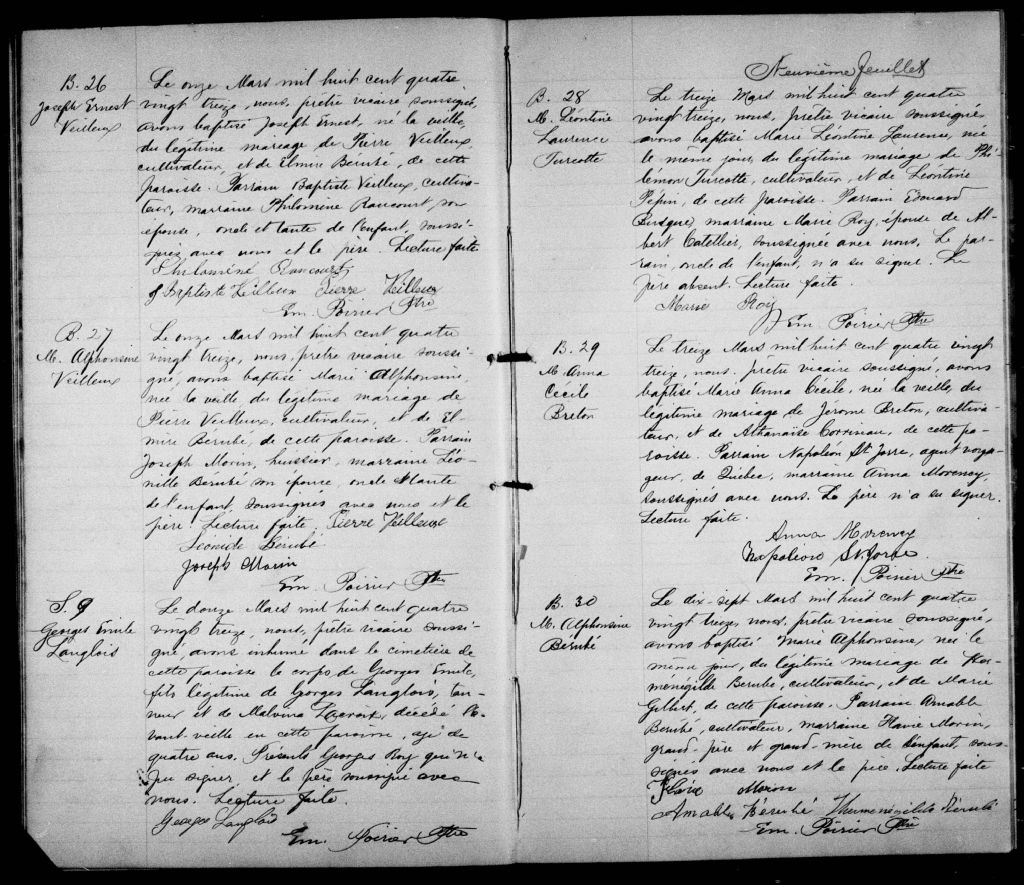 B. 26
Joseph Ernest
Veilleux
Le onze Mars mil huit cent quatre
vingt treize, nous, prêtre vicaire soussigné,
avons baptisé Joseph Ernest, né la veille,
du légitime mariage de Pierre Veilleux,
cultivateur, et de Elmire Berubé, de cette
paroisse. Parrain Baptiste Veilleux, cultiva-
teur, marraine Philomène Rancourt son
épouse, oncle et tante de l'enfant, soussi-
gnés avec nous et le père Lecture faite
Philomène Rancourt
J Baptiste Veilleux Pierre Veilleux
Em. Poirier Ptre
B. 27
M. Alphonsine
Veilleux
Le onze Mars mil huit cent quatre
vingt treize, nous, prêtre vicaire soussi-
gné, avons baptisé Marie Alphonsine,
née la veille du légitime mariage de
Pierre Veilleux, cultivateur, et de El-
mire Berubé, de cette paroisse. Parrain
Joseph Morin, huissier, marraine Léo-
nille Berubé son épouse, oncle & tante
de l'enfant, soussignés avec nous et le
père. Lecture faite. Pierre Veilleux
Bérubé
Joseph Morin
Em. Poirier Ptre
S. 9
Georges Emile
Langlois
Le douze Mars mil huit cent quatre
vingt treize, nous, prêtre vicaire soussi-
gné avons inhumé dans le cimetière de
cette paroisse le corps de Georges Emile,
fils légitime de Georges Langlois, tan-
neur et de Malvina Lacroix, décédé l'a-
vant veille en cette paroisse, agé de
quatre ans. Présents Georges Roy qui n'a
pu signer, et le père soussigné avec
nous. Lecture faite.
Georges Langlois
Em. Poirier Ptre
Neuvième feuillet
B. 28
M. Léontine
Laurence
Turcotte
Le treize Mars mil huit cent quatre
vingt treize, nous, prêtre vicaire soussignés
avons baptisé Marie Léontine Laurence, née
le même jour, du légitime mariage de Phi-
lémon Turcotte, cultivateur, et de Léontine
Pépin, de cette paroisse. Parrain Edouard
Busque, marraine Marie Roy, épouse de Al-
bert Catellier, soussignée avec nous. Le par-
rain, oncle de l'enfant, n'a su signer. Le
père absent. Lecture faite.
Marie Roy
Em. Poirier Ptre
B. 29
M. Anna
Cécile
Breton
Le treize Mars mil huit cent quatre vingt
treize, nous, prêtre vicaire soussigné, avons
baptisé Marie Anna Cécile, née la veille, du
légitime mariage de Jérome Breton, cultiva-
teur, et de Athanaïse Corriveau, de cette pa-
roisse. Parrain Napoléon St Jorre, agent voya-
geur, de Québec, marraine Anna Morency,
soussignés avec nous. Le père n'a su signer.
Lecture faite.
Anna Morency
Napoleon St Jorre
Em. Poirier Ptre
B. 30
M. Alphonsine
Bérubé
Le dix-sept Mars mil huit cent quatre
vingt treize, nous, prêtre vicaire soussigné,
avons baptisé Marie Alphonsine, née le
même jour, du légitime mariage de Her-
ménégilde Berubé, cultivateur, et de Marie
Gilbert, de cette paroisse. Parrain Amable
Berubé, cultivateur, marraine Flavie Morin,
grand-père et grand-mère de l'enfant, sous-
signés avec nous et le père. Lecture faite
Flavie Morin
Amable Bérubé Hermenegilde Bérubé
Em. Poirier Ptre